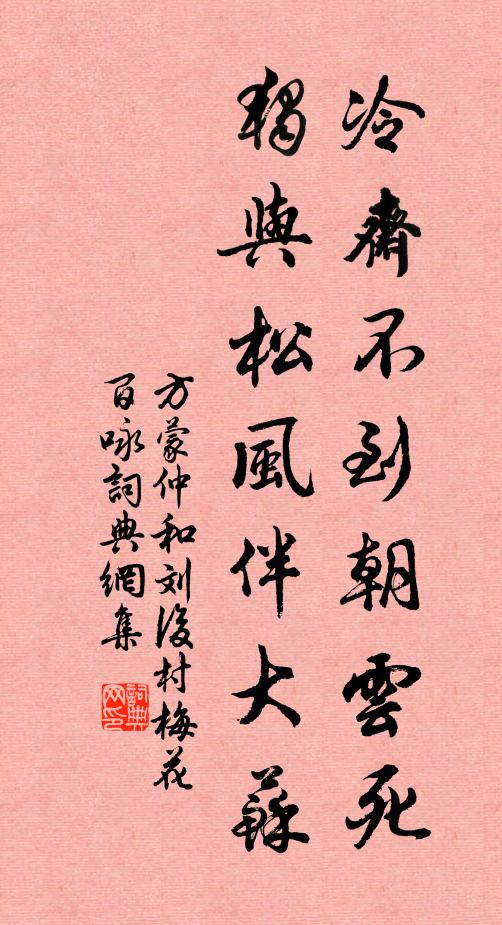 冷齋不到朝雲死
獨與松風伴大蘇
方蒙仲和刘後村梅花
百咏詞典網集
詞典
网印